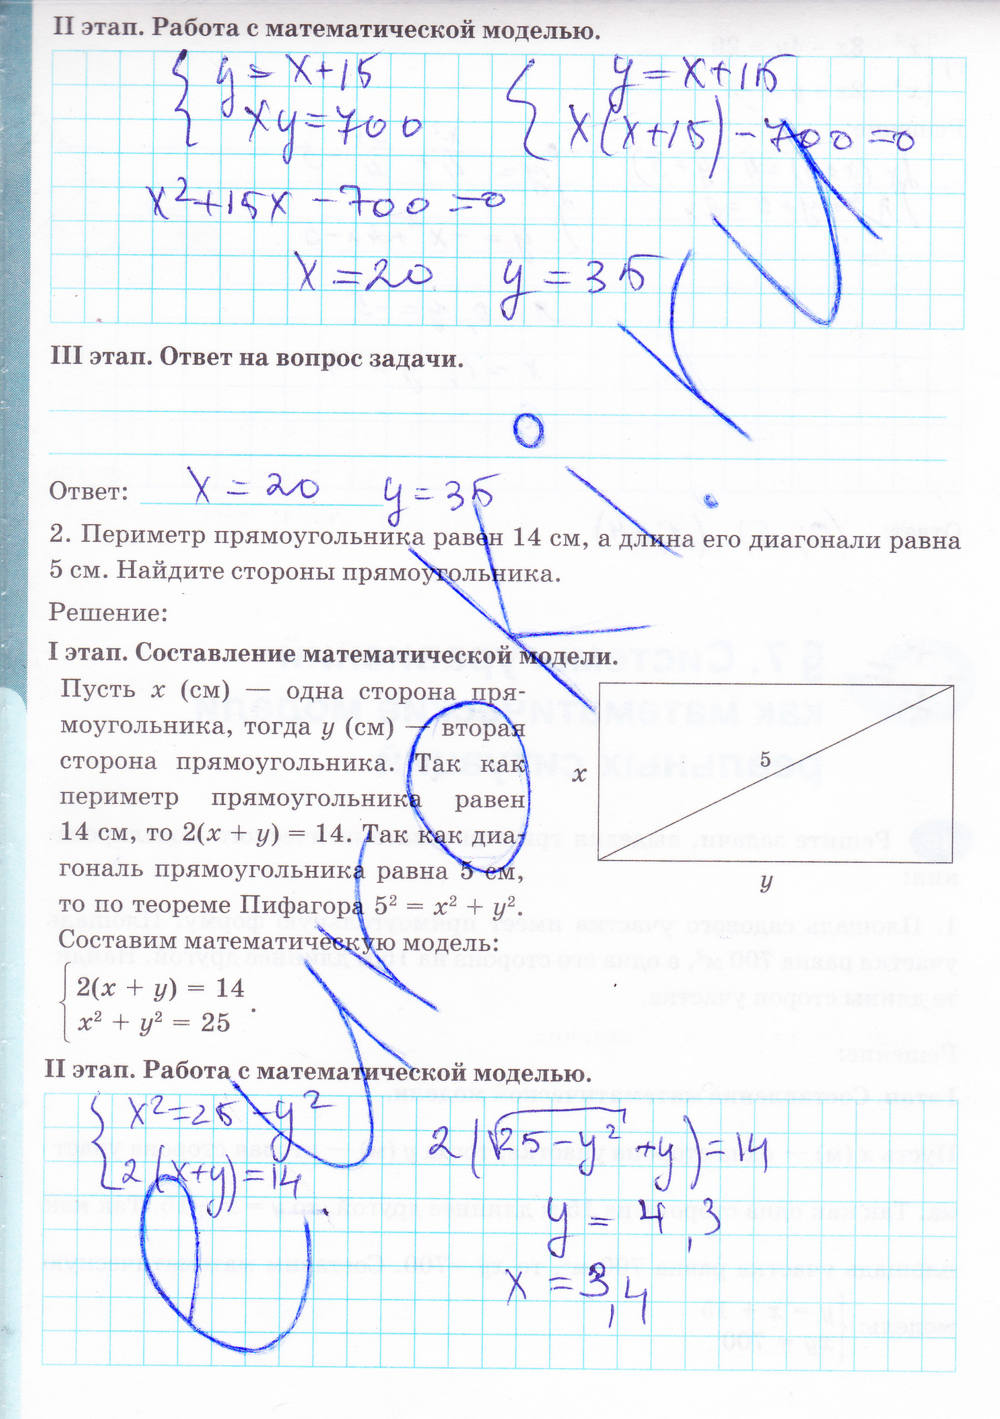 II этап. Работа с математической моделью.
y = x+15
xy = 700
y = x+15
x(x+15) - 700 = 0
x²+15x - 700 = 0
x = 20 y = 35
III этап. Ответ на вопрос задачи.
Ответ: x = 20 y = 35
2. Периметр прямоугольника равен 14 см, а длина его диагонали равна
5 см. Найдите стороны прямоугольника.
Решение:
I этап. Составление математической модели.
Пусть x (см) — одна сторона пря-
моугольника, тогда y (см) — вторая
сторона прямоугольника. Так как
периметр прямоугольника равен
14 см, то 2(x + y) = 14. Так как диа-
гональ прямоугольника равна 5 см,
то по теореме Пифагора 5² = x² + y².
x
5
y
Составим математическую модель:
2(x + y) = 14
x² + y² = 25 .
II этап. Работа с математической моделью.
x² = 25 - y²
2(x+y) = 14
2(√25-y² + y) = 14
y = 4,3
x = 3,4